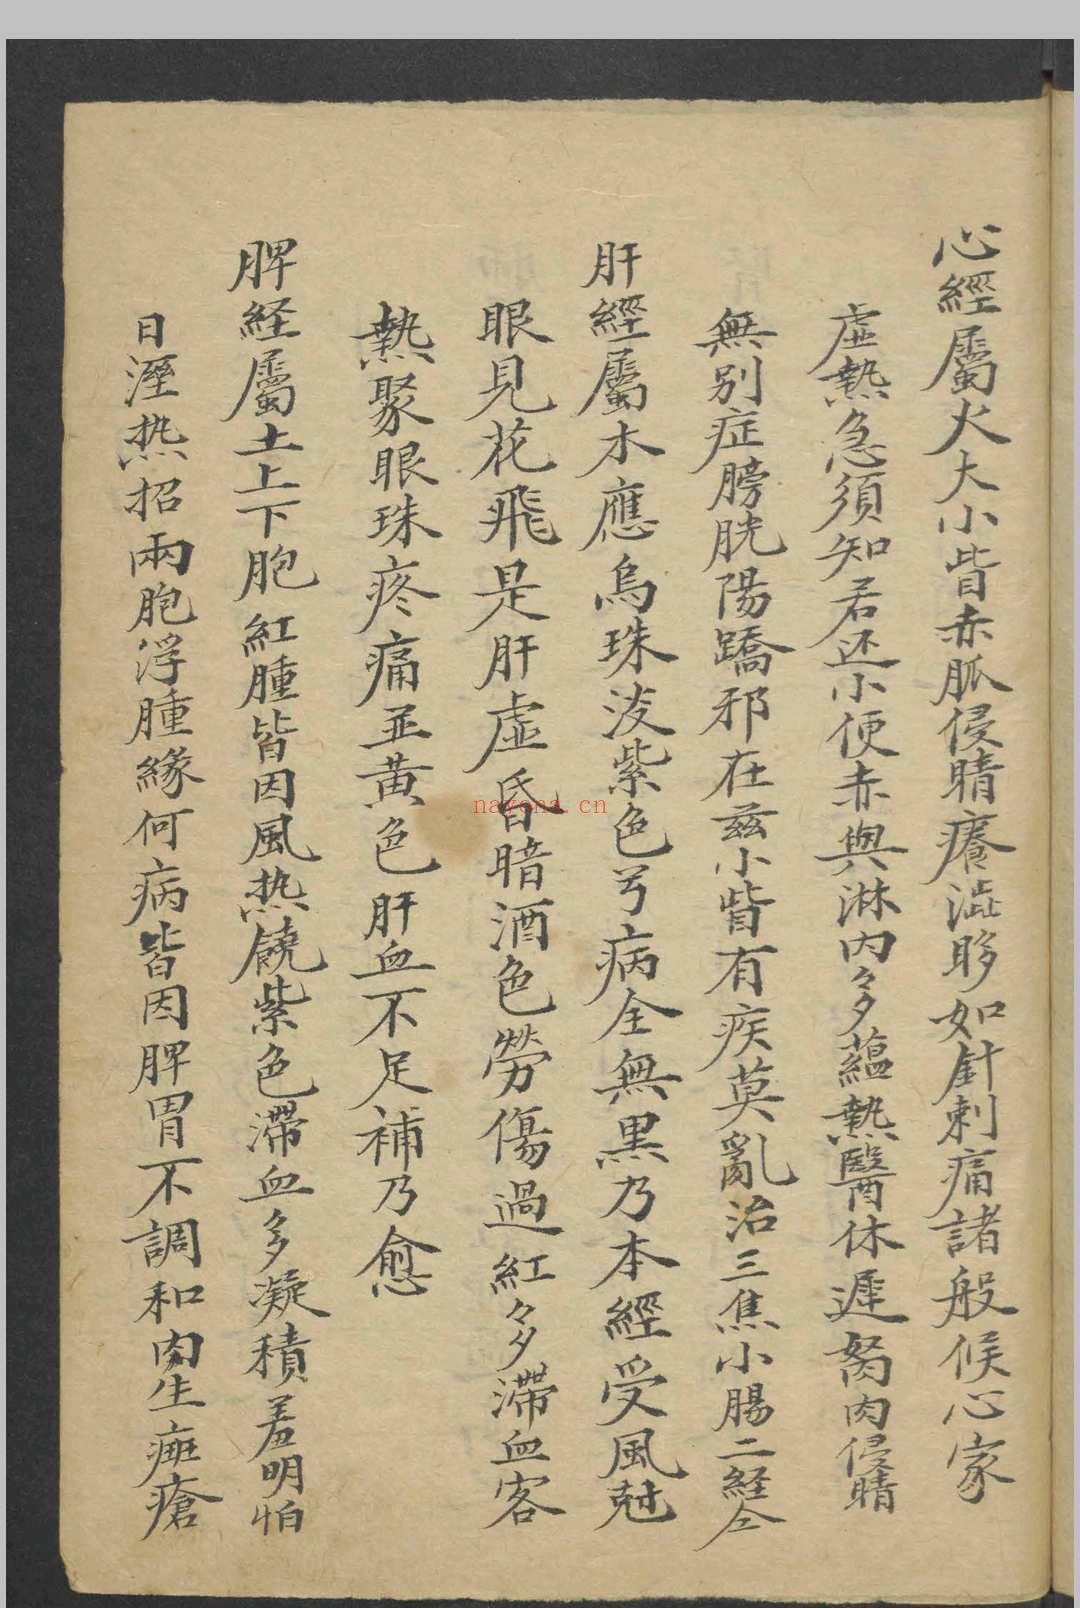 心經屬火大小眥赤脈侵睛癢澁眵如針刺痛諸般候心家
虛熱急須知若还小便赤與淋内多蘊熱醫休遲努肉侵睛
無别症膀胱陽蹻邪在兹小眥有疾莫亂治三焦小腸二経仝
肝經屬木應烏珠淡紫色兮病全無黒乃本經受風尅
眼見花飛是肝虛昏暗酒色勞傷過紅多滯血客
熱聚眼珠疼痛並黄色肝血不足補乃愈
脾経屬土上下胞紅腫皆因風热饒紫色滯血多凝積羞明怕
日溼热招兩胞浮腫緣何病皆因脾胃不調和肉生瘡
nayona.cn